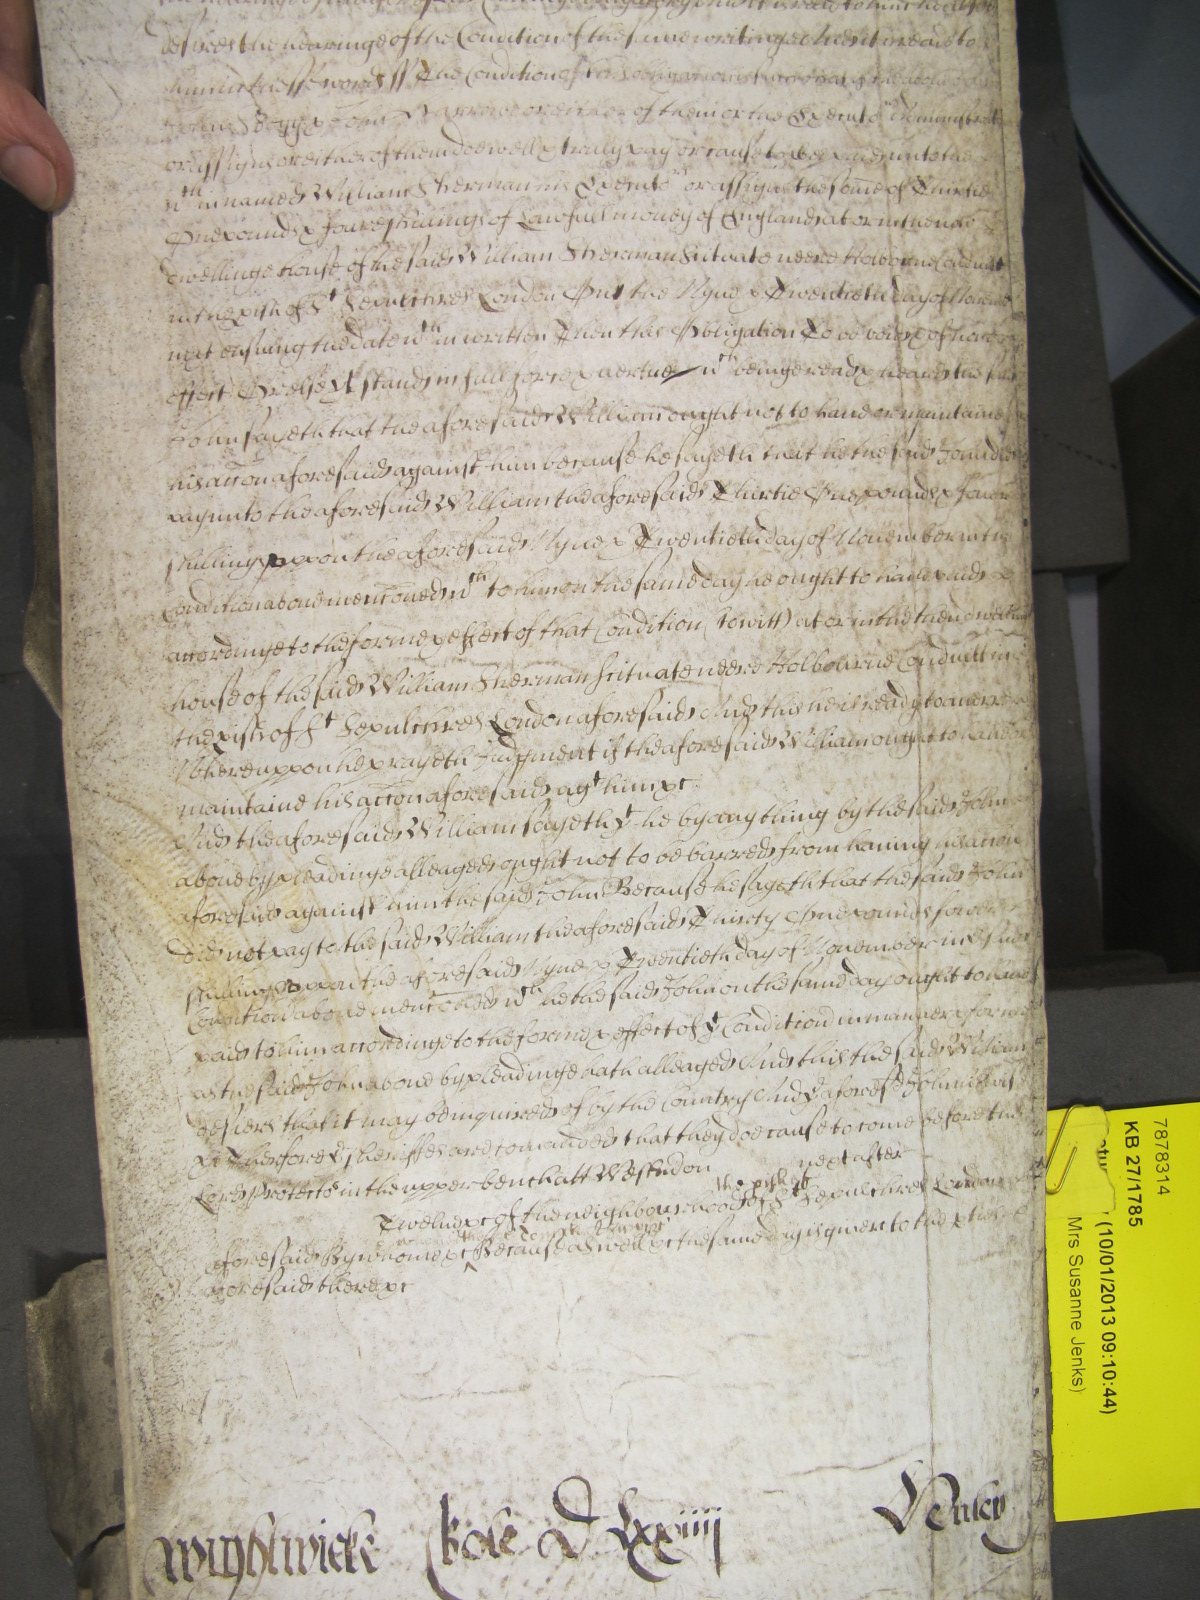 desires the hearinge of the Condition of the same writinge & hee it is read to
him in theise words ss The Condition of
John
or assignes or either of them doe well & truly pay or cause to bee paid unto the
wth in named William Sherman his Executrs or assignes the some of Thirtie
One pounds & foure shillings of Lawfull money of England at or in the now
dwellinge house of the said William Sherman Scituate neere Holborne Conduitt
in the pish of St Sepulchres London On the Nyne & Twentieth day of Novem
next ensuing the date wth in written Then this Obligation To be voyd & of none
effect Or else It stand in full force & vertue wch beinge read & heard the said
John sayeth that the aforesaid William ought not to have or maintaine
his accon aforesaid against him because he sayeth that he the said John did
pay unto the aforesaid William the aforesaid Thirtie One pounds & foure
shillings uppon the aforesaid Nyne & Twentieth day of November in the
Condition above menconed wch to him on the same day he ought to have paid
accordinge to the forme & effect of that Condition (to witt) at or in the then dwellinge
house of the said William Sherman Scituate neere Holbourne Conduitt in
the pish of St Sepulchres London aforesaid And this he is ready to averre
Whereuppon he prayeth Judgment if the aforesaid William ought to have or
maintaine his accon aforesaid agt him &c
And the aforesaid William sayeth yt he by any thing by the said John
above by pleadinge alleaged ought not to be barred from haveing his accon
aforesaid against him the said John Because he sayeth that the said John
did not pay to the said William the aforesaid Thirty One pounds foure
shillings uppon the aforesaid Nyne & Twentieth day of November in the
Condition above menconed wch he the said John on the same day ought to have
paid to him accordinge to the forme & effect of ye Condition in manner & forme
as the said John above by pleadinge hath alleaged And this the said William
desires that it may be inquired of by the Country And ye aforesd John likewise
&c Therefore ye sheriffes are comanded that they doe cause to come before the
Lord Protector in the upper bench att Westm on next after
Twelve &c of the neighbourhood of the pish of St Sepulchres London
aforesaid By whome &c Because as well &c the same day is given to the pties
aforesaid there &c
Wightwicke Rolle D Lxxiiij
7878314
KB 27/1785
(10/01/2013 09:10:44)
Mrs Susanne Jenks)